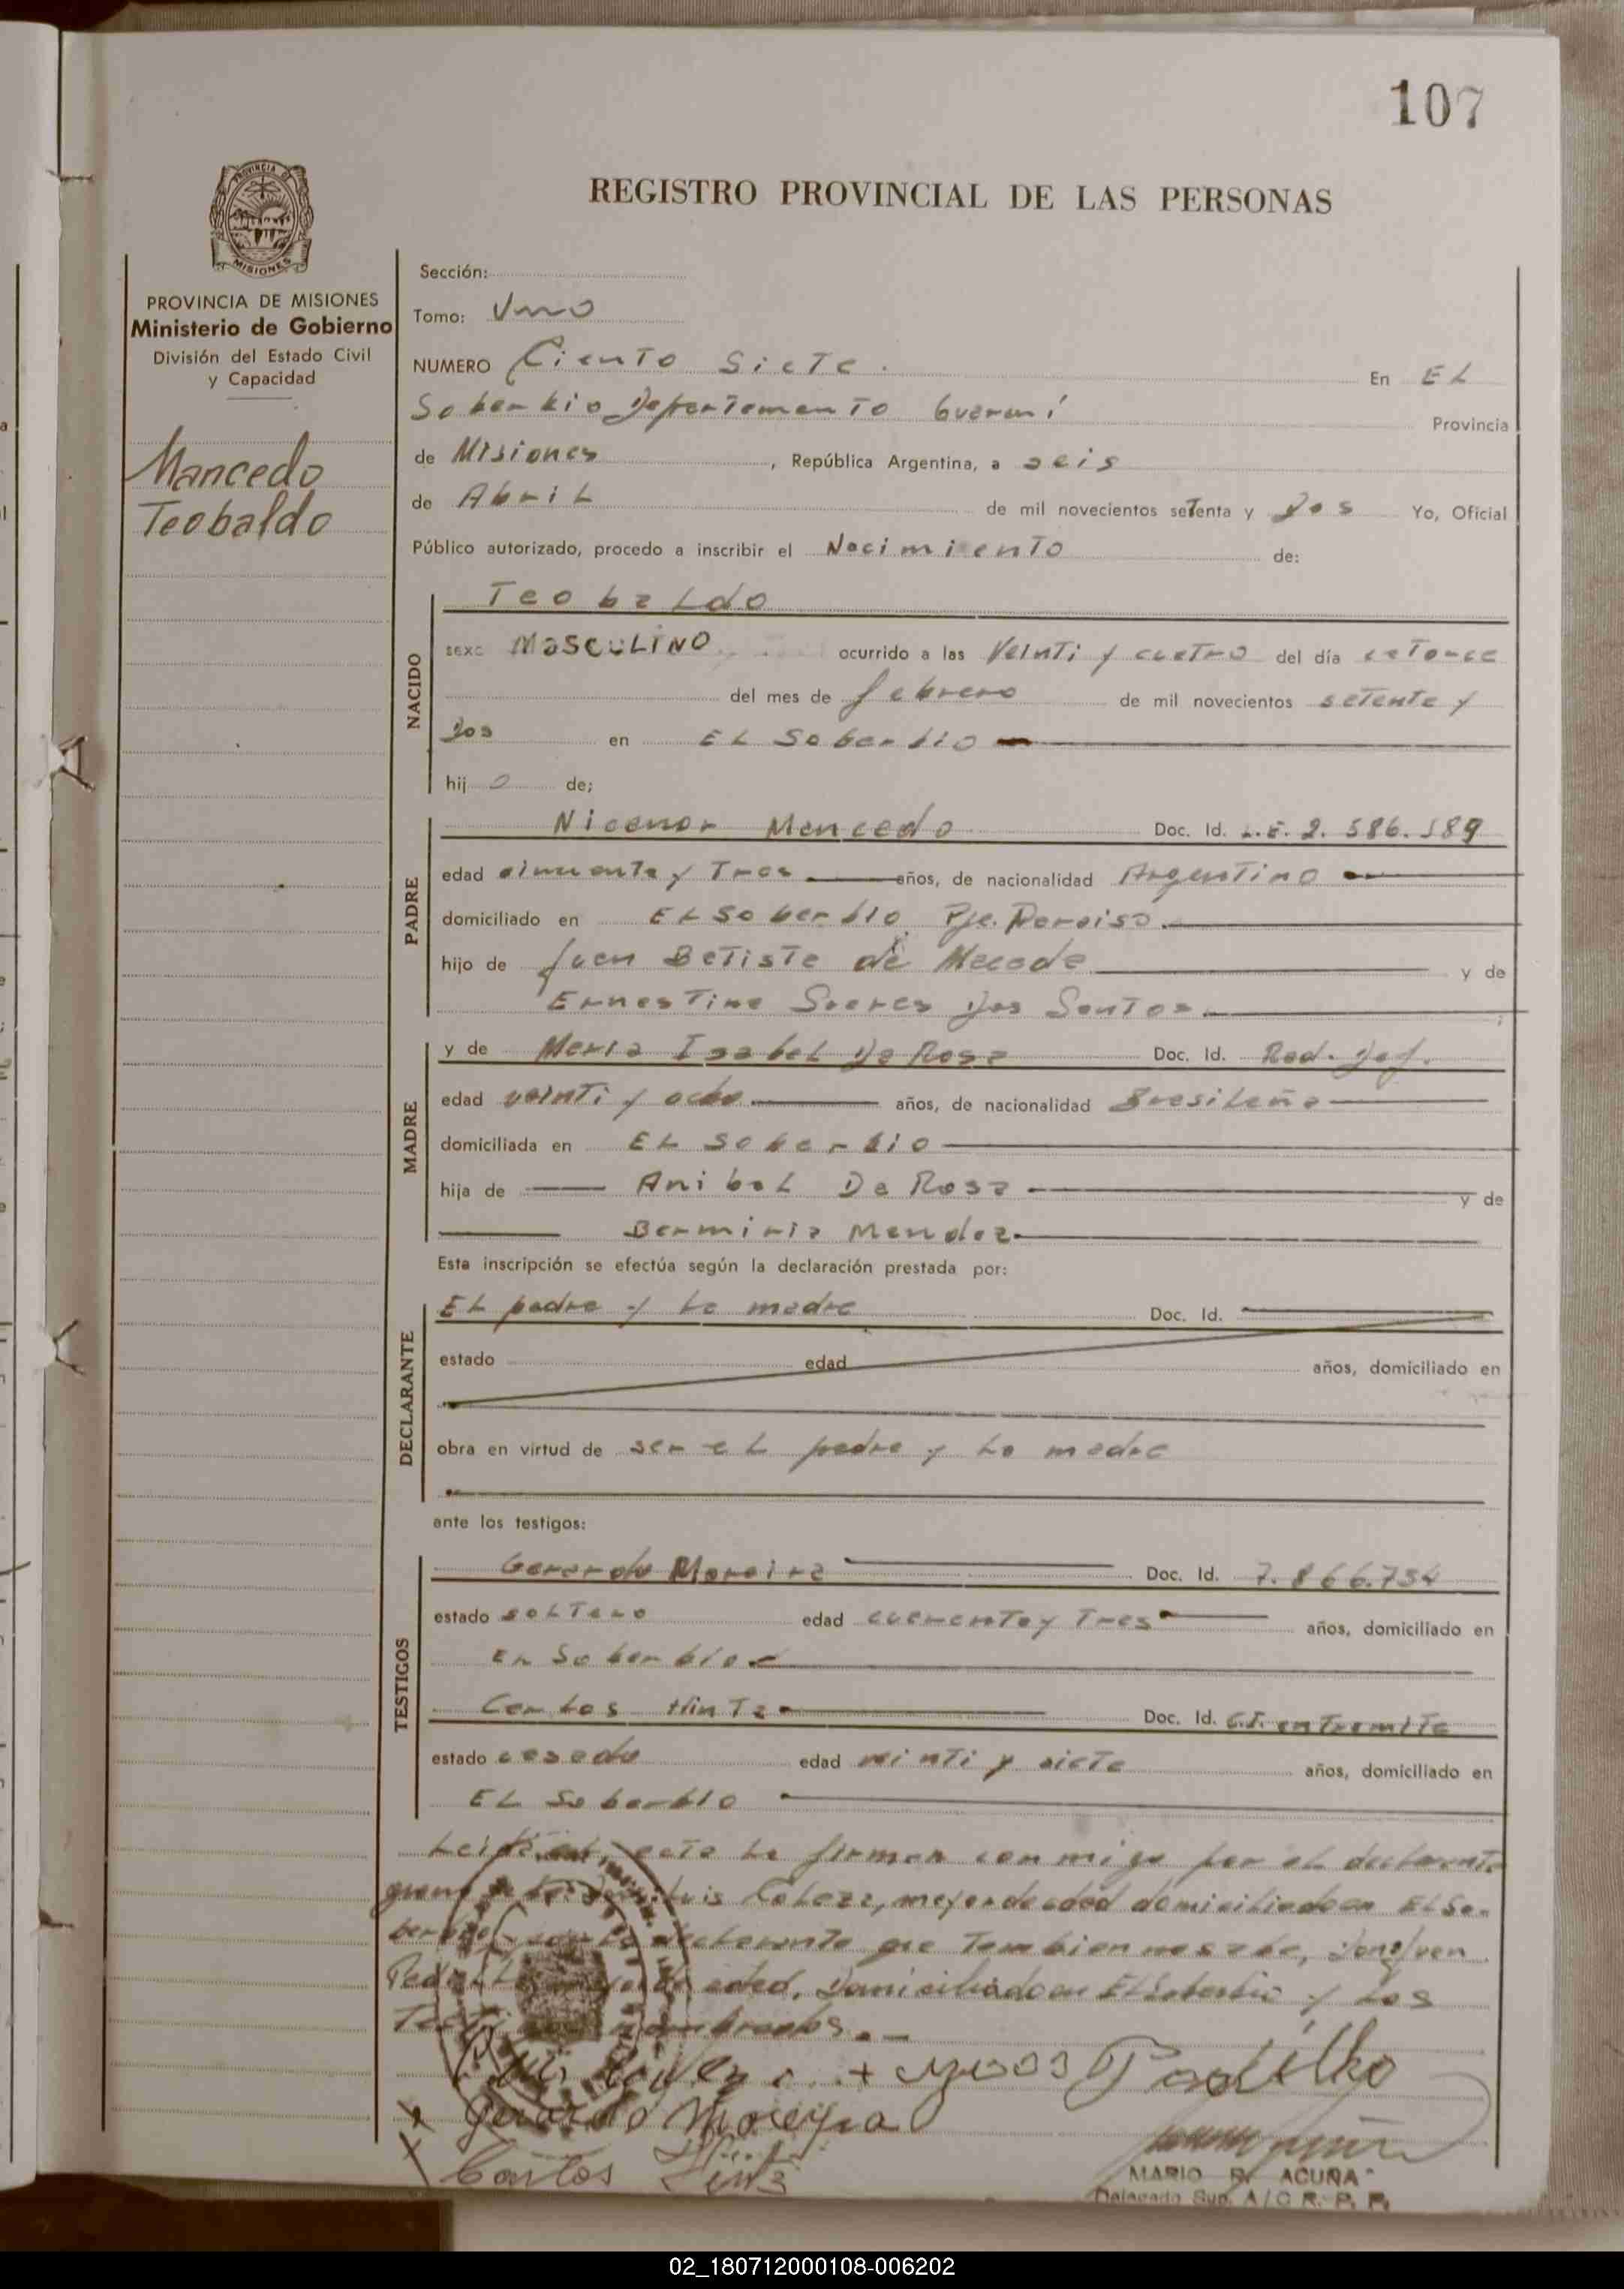 107
REGISTRO PROVINCIAL DE LAS PERSONAS
PROVINCIA DE MISIONES
PROVINCIA DE MISIONES
Ministerio de Gobierno
División del Estado Civil
y Capacidad
Mancedo
Teobaldo
Sección:
Tomo: Uno
NUMERO Ciento Siete. En EL
Soberbio Departamento Guaraní Provincia
de Misiones, República Argentina, a seis
de Abril de mil novecientos setenta y dos Yo, Oficial
Público autorizado, procedo a inscribir el Nacimiento de:
NACIDO
Teobaldo
sexo MASCULINO ocurrido a las Veinti y cuatro del día catorce
del mes de febrero de mil novecientos setenta y
dos en EL Soberbio
hij o de;
PADRE
Nicanor Mancedo Doc. Id. L.E. 2. 586. 589
edad cincuenta y Tres años, de nacionalidad Argentino
domiciliado en EL Soberbio Pje. Paraiso.
hijo de Juan Batista de Macedo y de
Ernestina Soares Dos Santos.
MADRE
y de Maria Isabel Da Rosa Doc. Id. Rad. Def.
edad veinti y ocho años, de nacionalidad Brasileña
domiciliada en EL Soberbio
hija de Anibal Da Rosa y de
Berminia Mendez
Esta inscripción se efectúa según la declaración prestada por:
DECLARANTE
EL padre y la madre Doc. Id.
estado edad años, domiciliado en
obra en virtud de ser el padre y la madre
ante los testigos:
TESTIGOS
Gerardo Moreira Doc. Id. 7. 866.754
estado soltero edad cuarenta y Tres años, domiciliado en
EL Soberbio
Carlos Hintz Doc. Id. C.I. en Tramite
estado casado edad veinti y siete años, domiciliado en
EL Soberbio
Leida el acta la firman conmigo por el declarante
Luis Cabeza, mayor de edad domiciliado en EL So-
declarante que Tambien no sabe,
edad, Domiciliado en EL Soberbio y Los
nombrados.
Padilho
Gerardo Moreyra
Carlos Hintz
MARIO R. ACUÑA
Delegado Sup. A/C R. P. P.
02_180712000108-006202